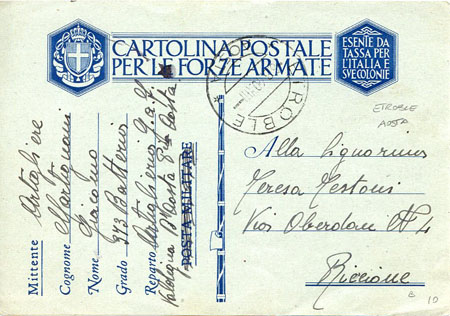 CARTOLINA POSTALE
PER LE FORZE ARMATE
ESENTE DA
TASSA PER
L'ITALIA E
SVE COLONIE
ETROBLE
ETROBLE
AOSTA
Mittente Artigliere
Cognome
Nome Giacomo
Grado 373 Batteria
Reparto Artiglieria G.a.F.
Valpelline D'Aosta
POSTA MILITARE
Alla Signorina
Teresa Testoni
Via Oberdan N 4
Riccione
10